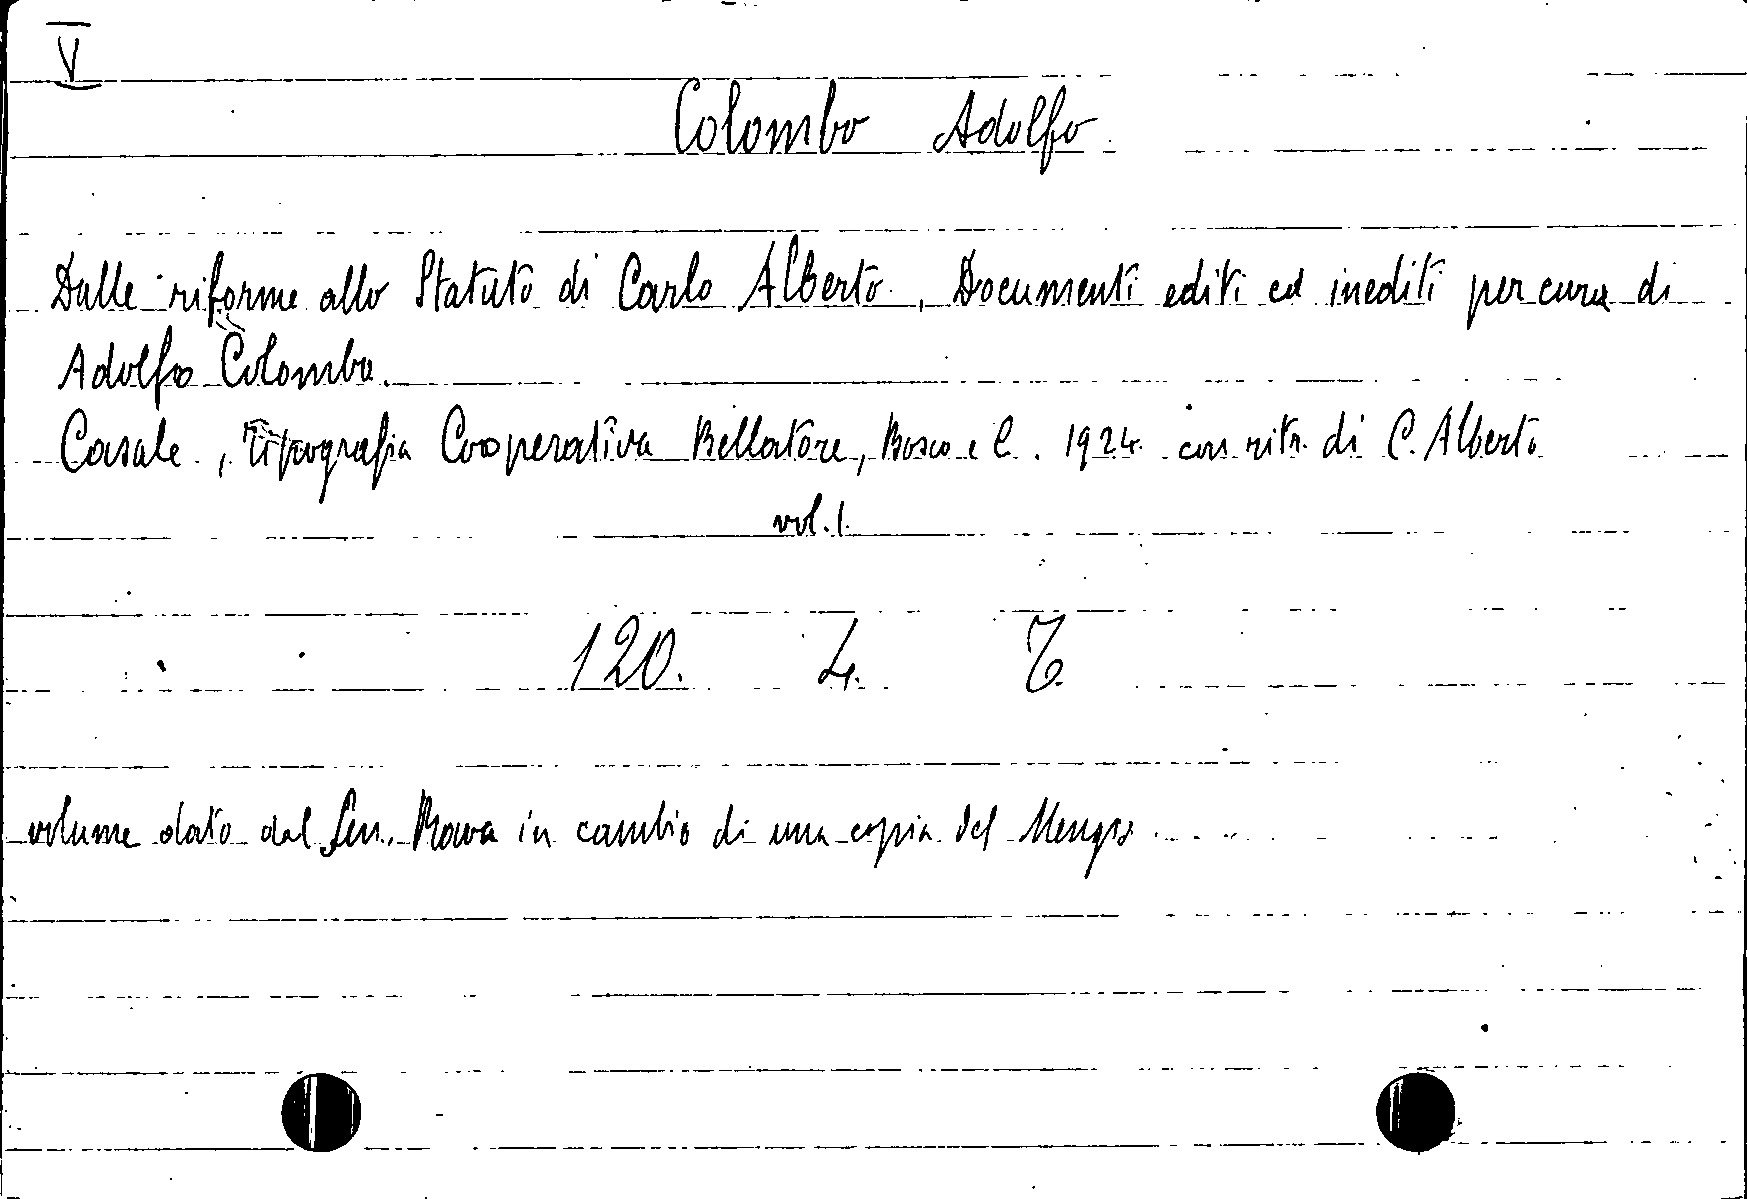 V
Colombo Adolfo
Dalle riforme allo Statuto di Carlo Alberto, Documenti editi ed inediti per cura di
Adolfo Colombo.
Casale, Tipografia Cooperativa Bellatore, Bosco e C. 1924. con ritr. di C. Alberto
vol. 1.
120. 4.
volume dato dal Sen. in cambio di una copia del